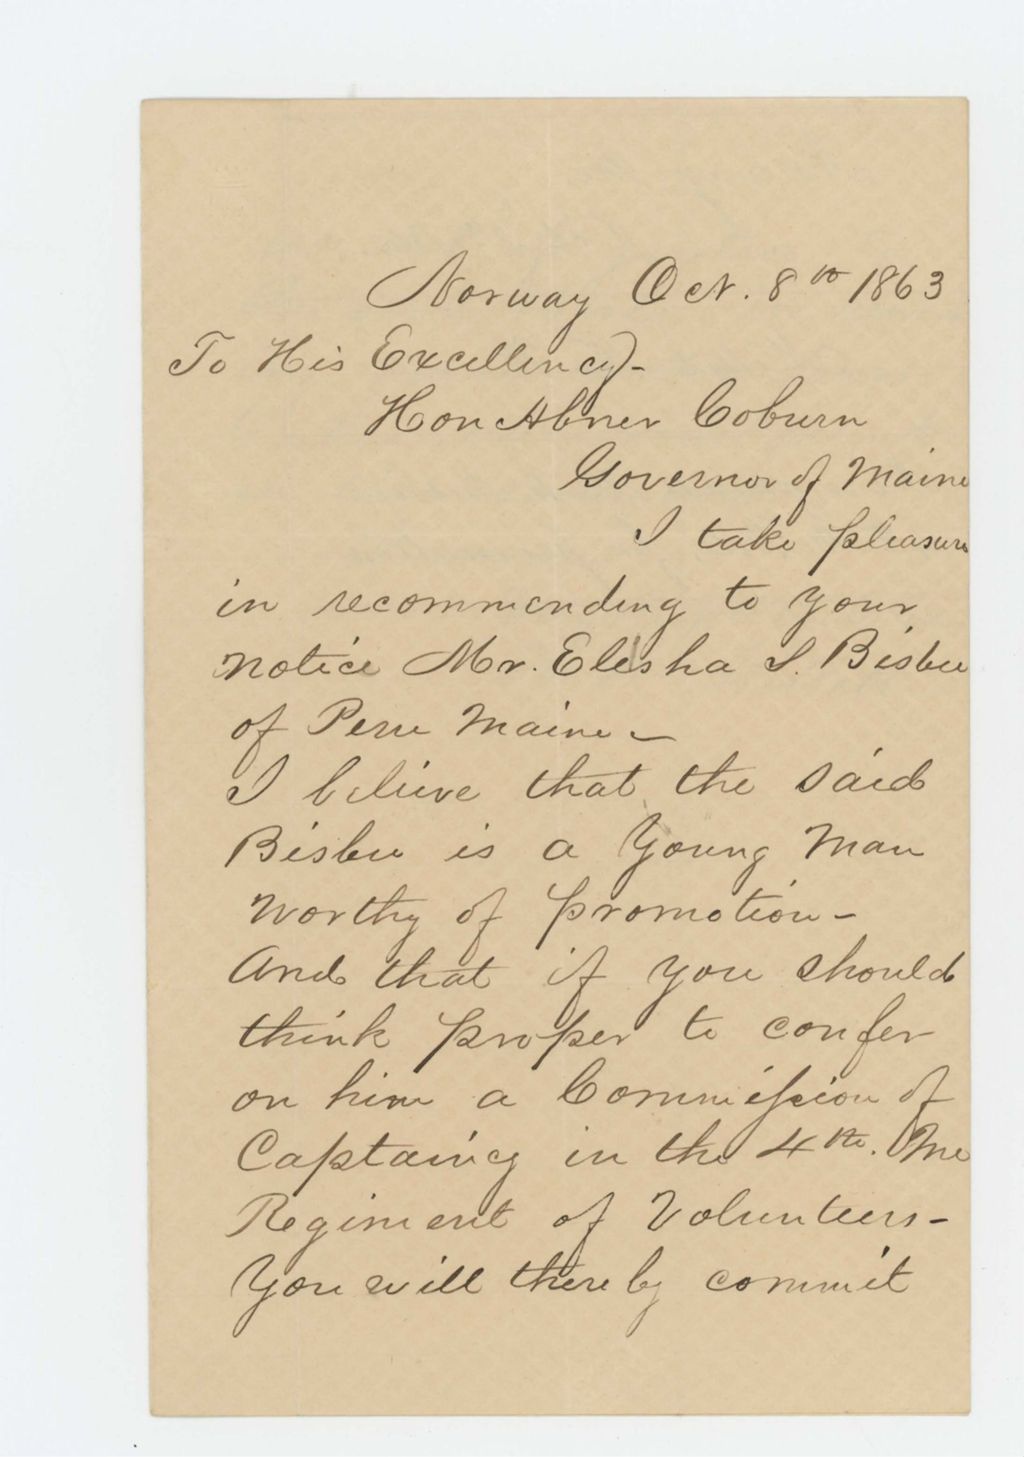 Norway Oct. 8th 1863
To His Excellency-
Hon Abner Coburn
Governor of Maine
I take pleasure
in recommending to your
notice Mr. Elesha S. Bisbee
of Peru Maine-
I believe that the said
Bisbee is a Young Man
worthy of promotion-
And that if you should
think proper to confer
on him a Commission of
Captaincy in the 4th. Me
Regiment of Volunteers-
You will thereby commit